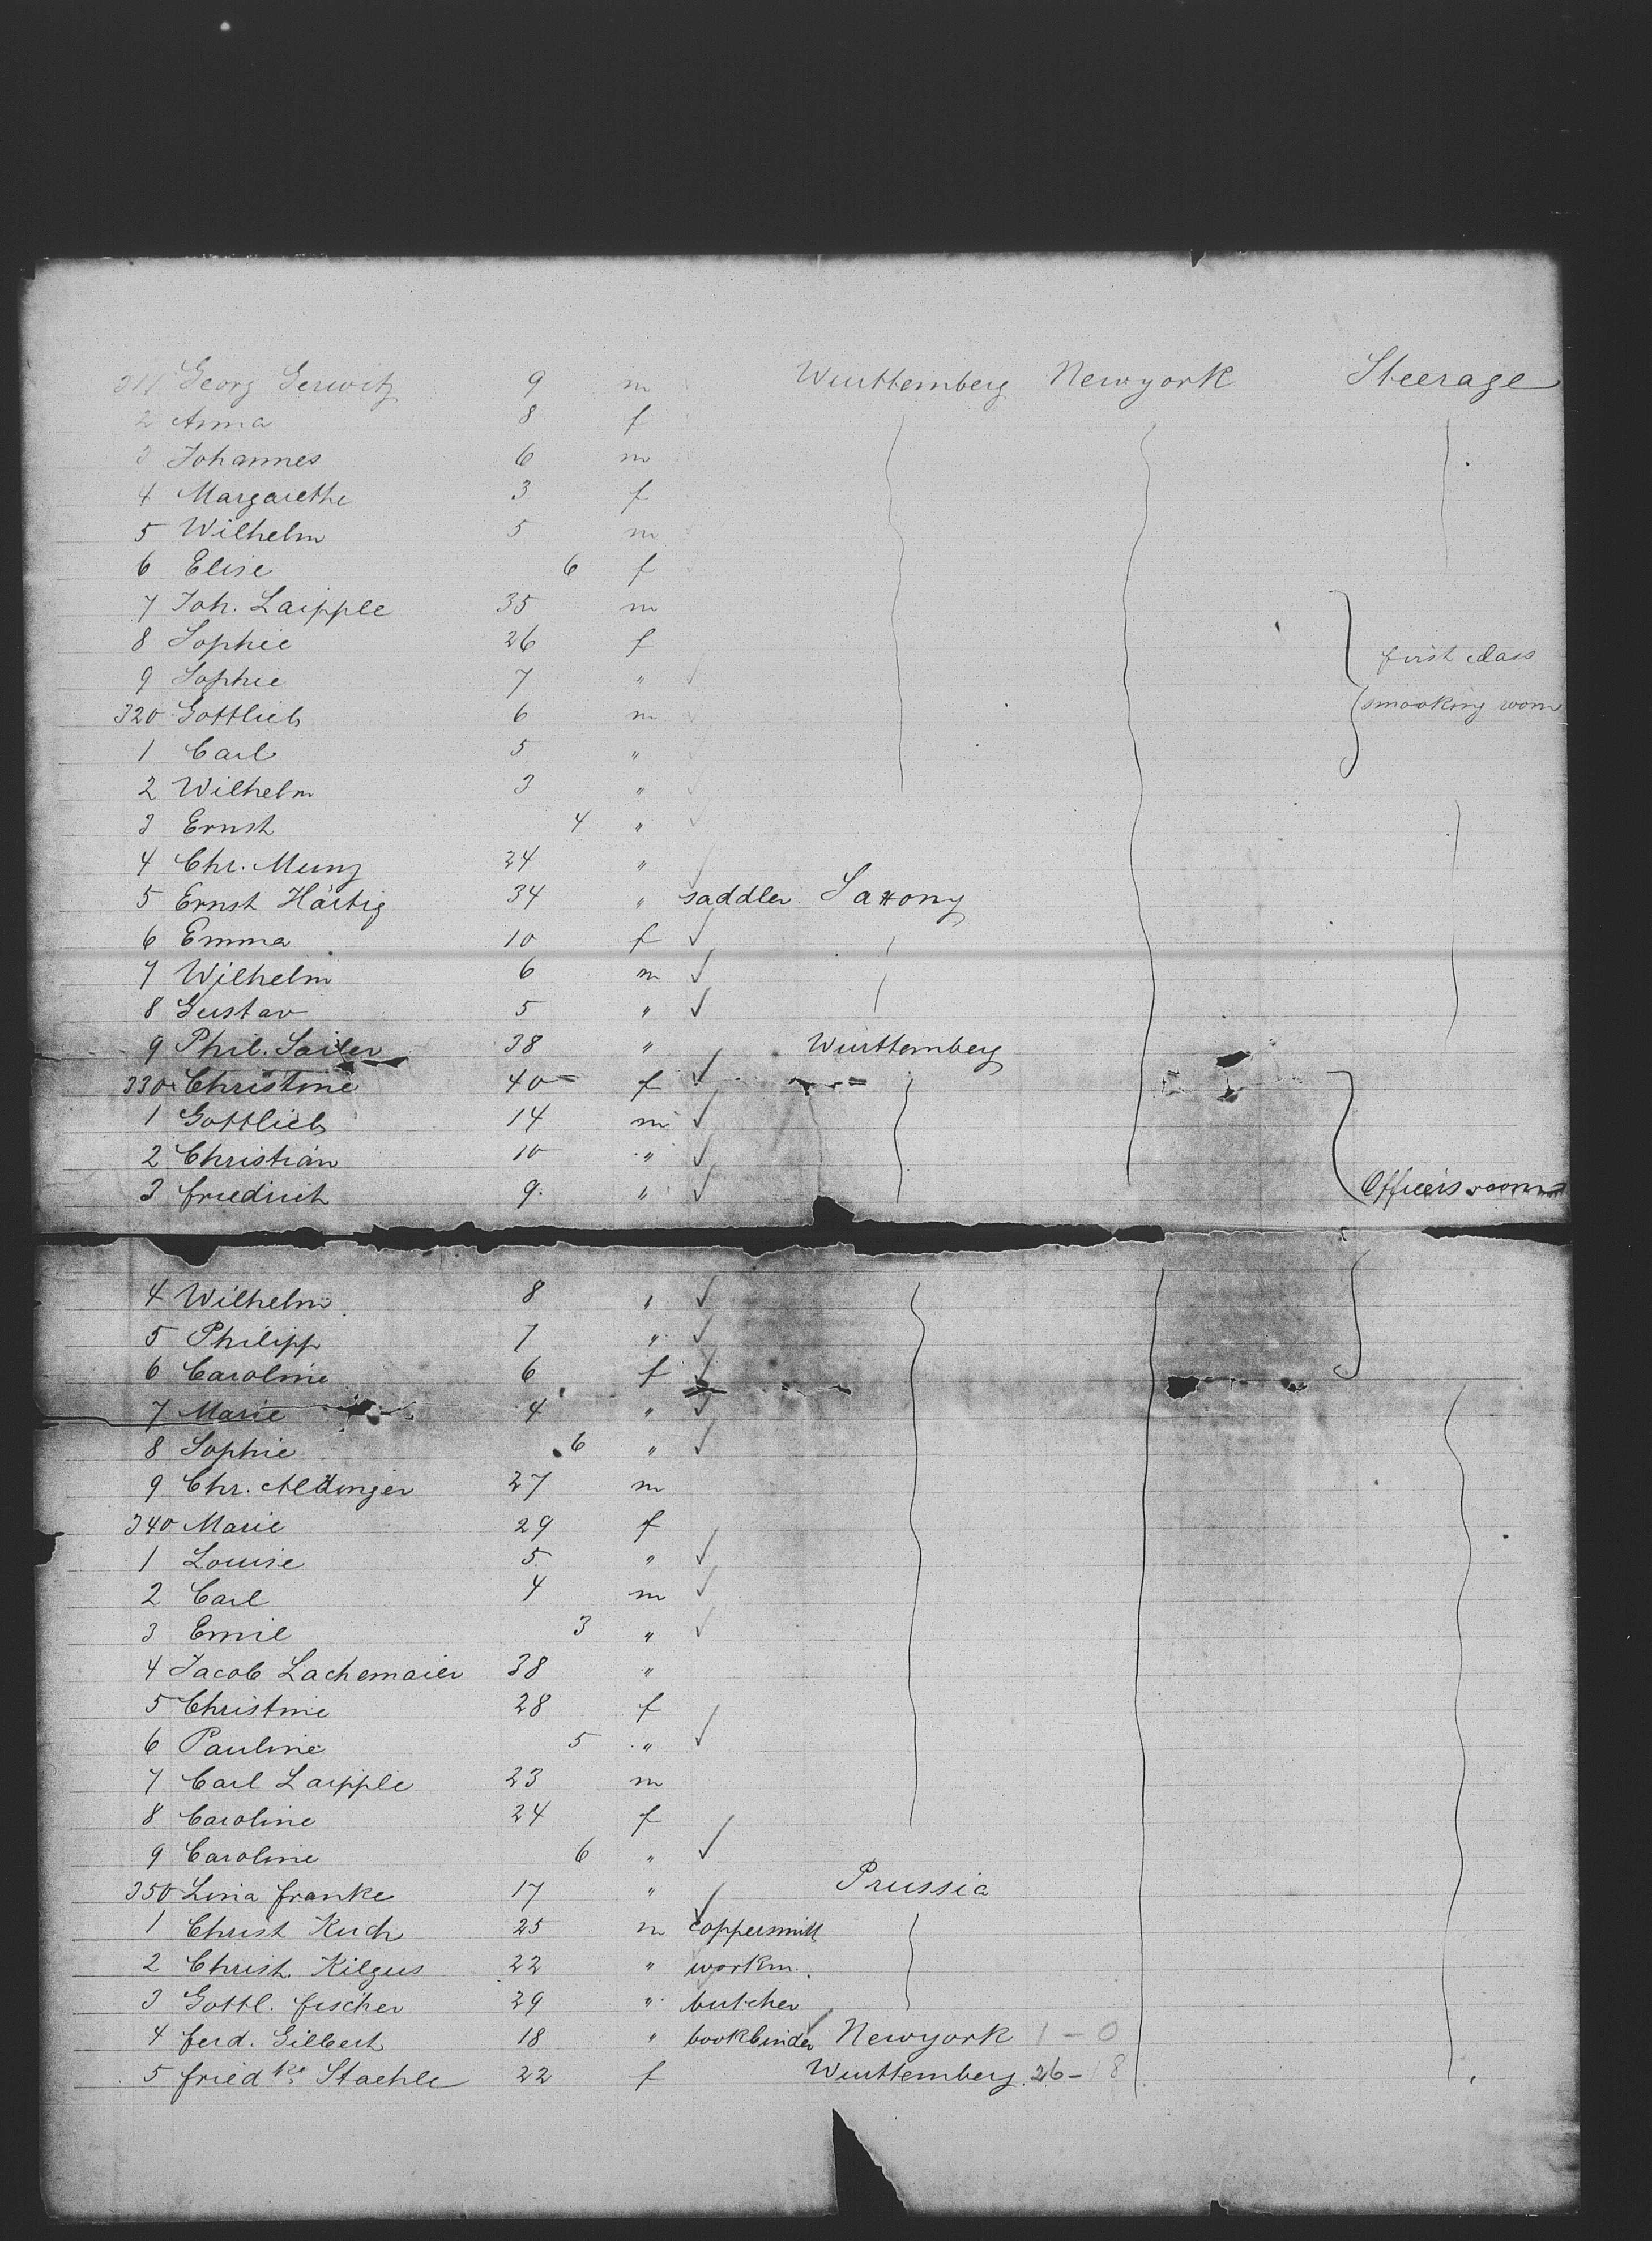 311 Georg Gerwitz 9 m Wurttemberg Newyork Steerage
2 Anna 8 f
3 Johannes 6 m
4 Margarethe 3 f
5 Wilhelm 5 m
6 Elise 6 f
7 Joh. Laipple 35 m
8 Sophie 26 f
9 Sophie 7 " first class
320 Gottlieb 6 m smooking room
1 Carl 5 "
2 Wilhelm 3 "
3 Ernst 4 "
4 Chr. Munz 24 "
5 Ernst Härtig 34 " saddler Saxony
6 Emma 10 f ✓
7 Wilhelm 6 m ✓
8 Gustav 5 " ✓
9 Phil. Sailer 38 " Wurttemberg
330 Christine 40 f ✓
1 Gottlieb 14 m ✓
2 Christian 10 " ✓
3 Friedrich 9 " ✓ Officers room
4 Wilhelm 8 " ✓
5 Philipp 7 " ✓
6 Caroline 6 f ✓
7 Marie 4 " ✓
8 Sophie 6 " ✓
9 Chr. Aldinger 27 m
340 Marie 29 f
1 Louise 5 " ✓
2 Carl 4 m ✓
3 Emil 3 " ✓
4 Jacob Lachemaier 38 "
5 Christine 28 f
6 Pauline 5 " ✓
7 Carl Laipple 23 m
8 Caroline 24 f
9 Caroline 6 " ✓
350 Lina Franke 17 " ✓ Prussia
1 Christ Kuch 25 m coppersmith
2 Christ. Kilgus 22 " workm.
3 Gottl. Fischer 29 " butcher
4 Ferd. Gilbert 18 " bookbinder Newyork 1 - 0
5 Friedke. Staehle 22 f Wurttemberg 26 - 18